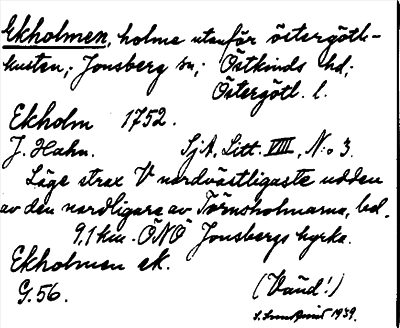 Ekholmen, holme utanför östergötl-
kusten; Jonsberg sn; Östkinds hd;
Östergötl. l.
Ekholm 1752.
J. Hahn. SjA, Litt. VIII, N:o 3.
Läge strax V nordvästligaste udden
av den nordligare av Törnsholmarna, bel.
9,1 km. ÖNÖ Jonsbergs kyrka.
Ekholmen ek.
G. 56. (Vänd!)
1939.